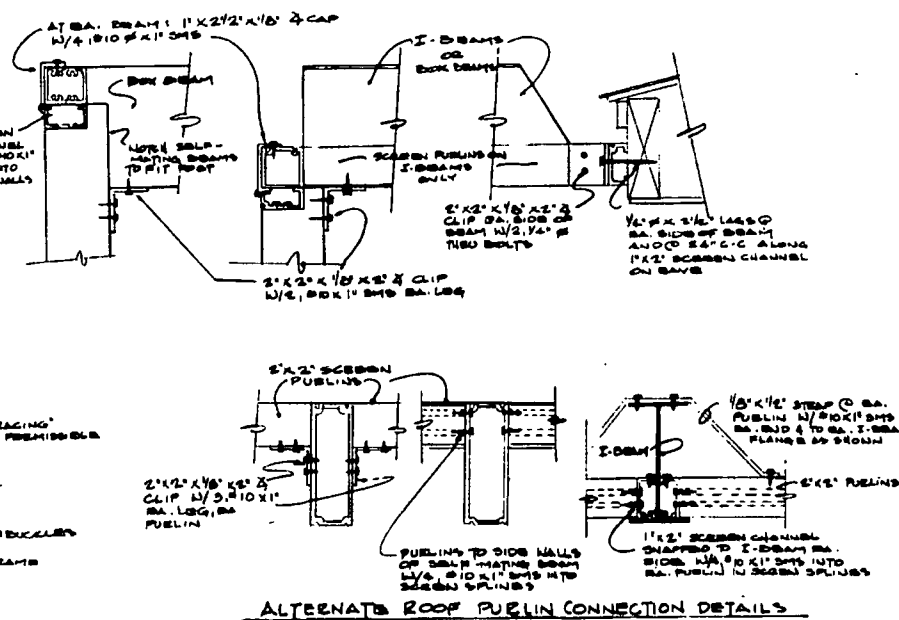 AT EA. BEAM: 1" X 2 1/2" X 1/8" ∡ CAP
W/4, #10 Ø X 1" SMS
BOX BEAM
NOTCH SELF-
MATING BEAMS
TO FIT POST
I-BEAMS
OR
BOX BEAMS
SCREEN PURLINS ON
I-BEAMS
ONLY
2" X 2" X 1/8" X 2" ∡
CLIP EA. SIDE OF
BEAM W/2, 1/4" Ø
THRU BOLTS
1/4" Ø X 2 1/2" LAGS @
EA. SIDE OF BEAM
AND @ 24" C-C ALONG
1" X 2" SCREEN CHANNEL
ON EAVE
2" X 2" X 1/8" X 2" ∡ CLIP
W/2, #10 X 1" SMS EA. LEG
NEL
10 X 1"
NTO
ALLS
RACING"
PERMISSIBLE
BUCKLES
RAME
2" X 2" SCREEN
PURLINS
2" X 2" X 1/8" X 2" ∡
CLIP W/3, #10 X 1"
EA. LEG, EA
PURLIN
PURLINS TO SIDE WALLS
OF SELF-MATING BEAM
W/4, #10 X 1" SMS INTO
SCREEN SPLINES
I-BEAM
1/8" X 1/2" STRAP @ EA.
PURLIN W/ #10 X 1" SMS
EA. END & TO EA. I-BEAM
FLANGE AS SHOWN
2" X 2" PURLINS
1" X 2" SCREEN CHANNEL
SNAPPED TO I-BEAM EA.
SIDE W/4, #10 X 1" SMS INTO
EA. PURLIN IN SCREEN SPLINES
ALTERNATE ROOF PURLIN CONNECTION DETAILS